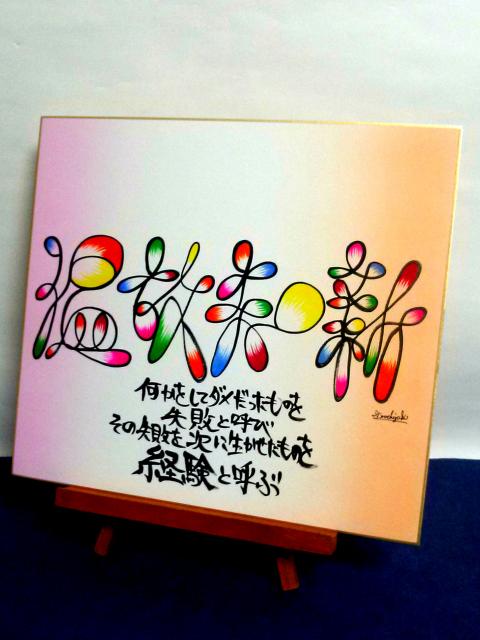 温故知新
何かをしてダメだったものを
失敗と呼び
その失敗を次に生かせたものを
経験と呼ぶ